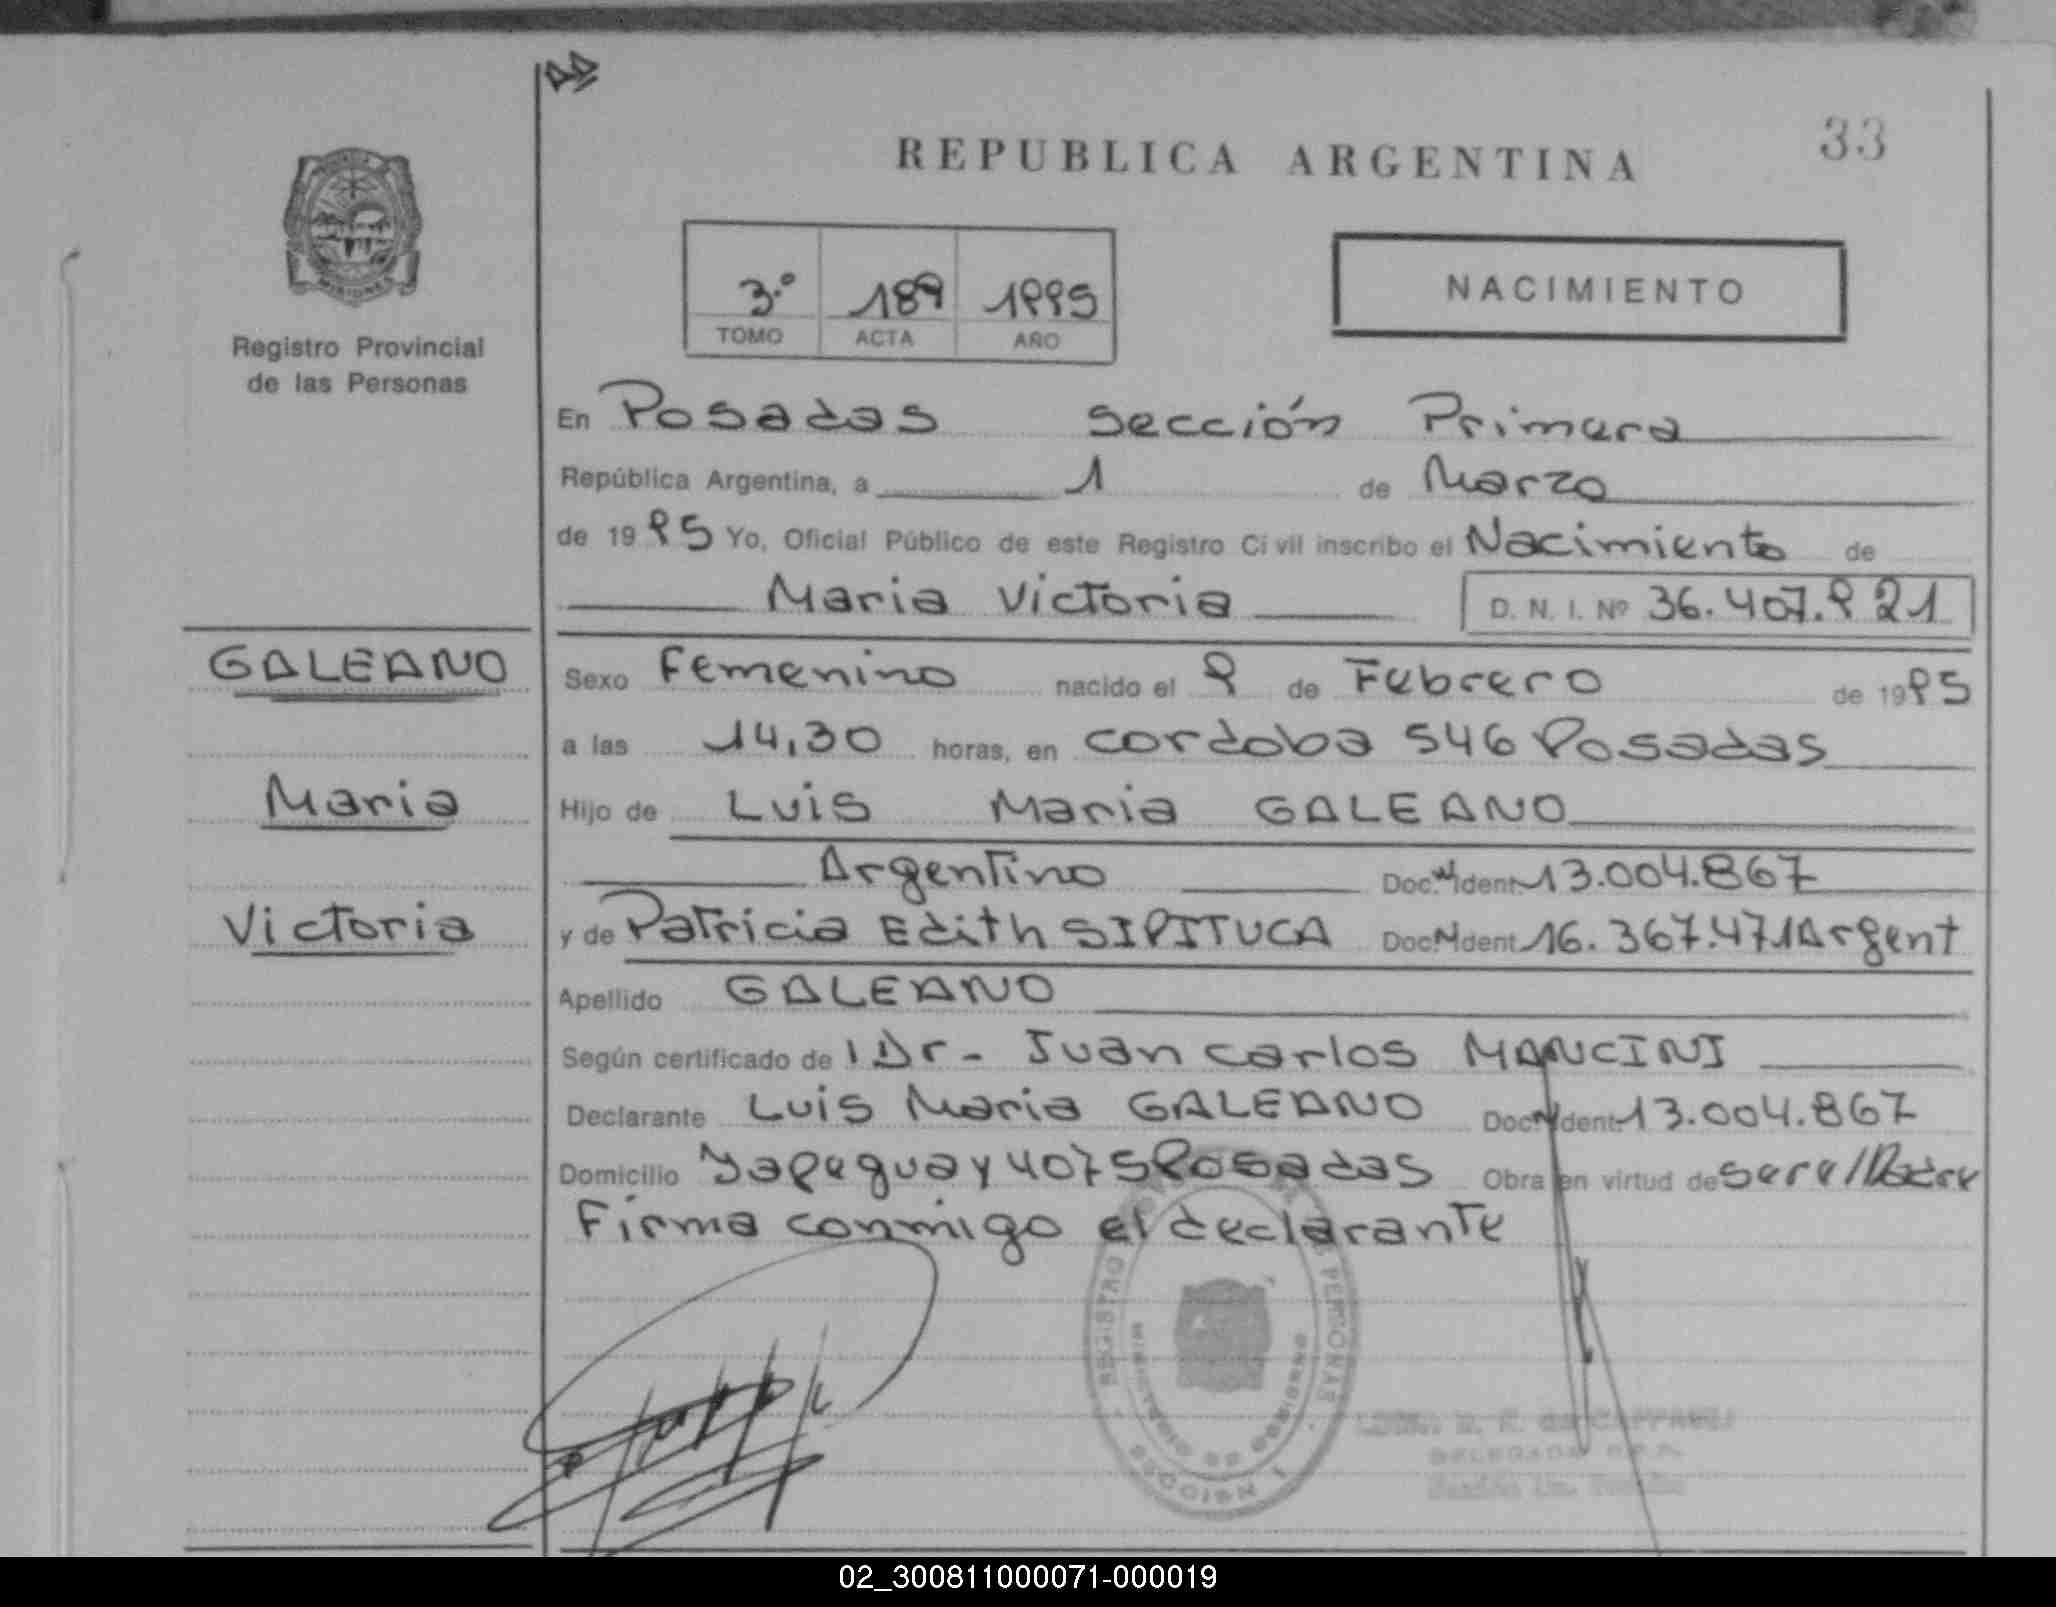 REPUBLICA ARGENTINA
33
MISIONES
Registro Provincial
de las Personas
3.º 189 1995
TOMO ACTA AÑO
NACIMIENTO
En Posadas Sección Primera
República Argentina, a 1 de Marzo
de 1995 Yo, Oficial Público de este Registro Civil inscribo el Nacimiento de
Maria Victoria D. N. I. Nº 36.407.921
GALEANO
Maria
Victoria
Sexo Femenino nacido el 9 de Febrero de 1995
a las 14,30 horas, en cordoba 546 Posadas
Hijo de Luis Maria GALEANO
Argentino Doc. Ident. 13.004.867
y de Patricia Edith SIPITUCA Doc. Ident. 16.367.471 Argent
Apellido GALEANO
Según certificado de Dr- Juan carlos MANCINI
Declarante Luis Maria GALEANO Doc. Ident. 13.004.867
Domicilio 4075 Posadas Obra en virtud de ser el Padre
Firma conmigo el declarante
REGISTRO PERSONAS
MINISTERIO DE GOBIERNO
SECCION 1
DELEGADA
02_300811000071-000019